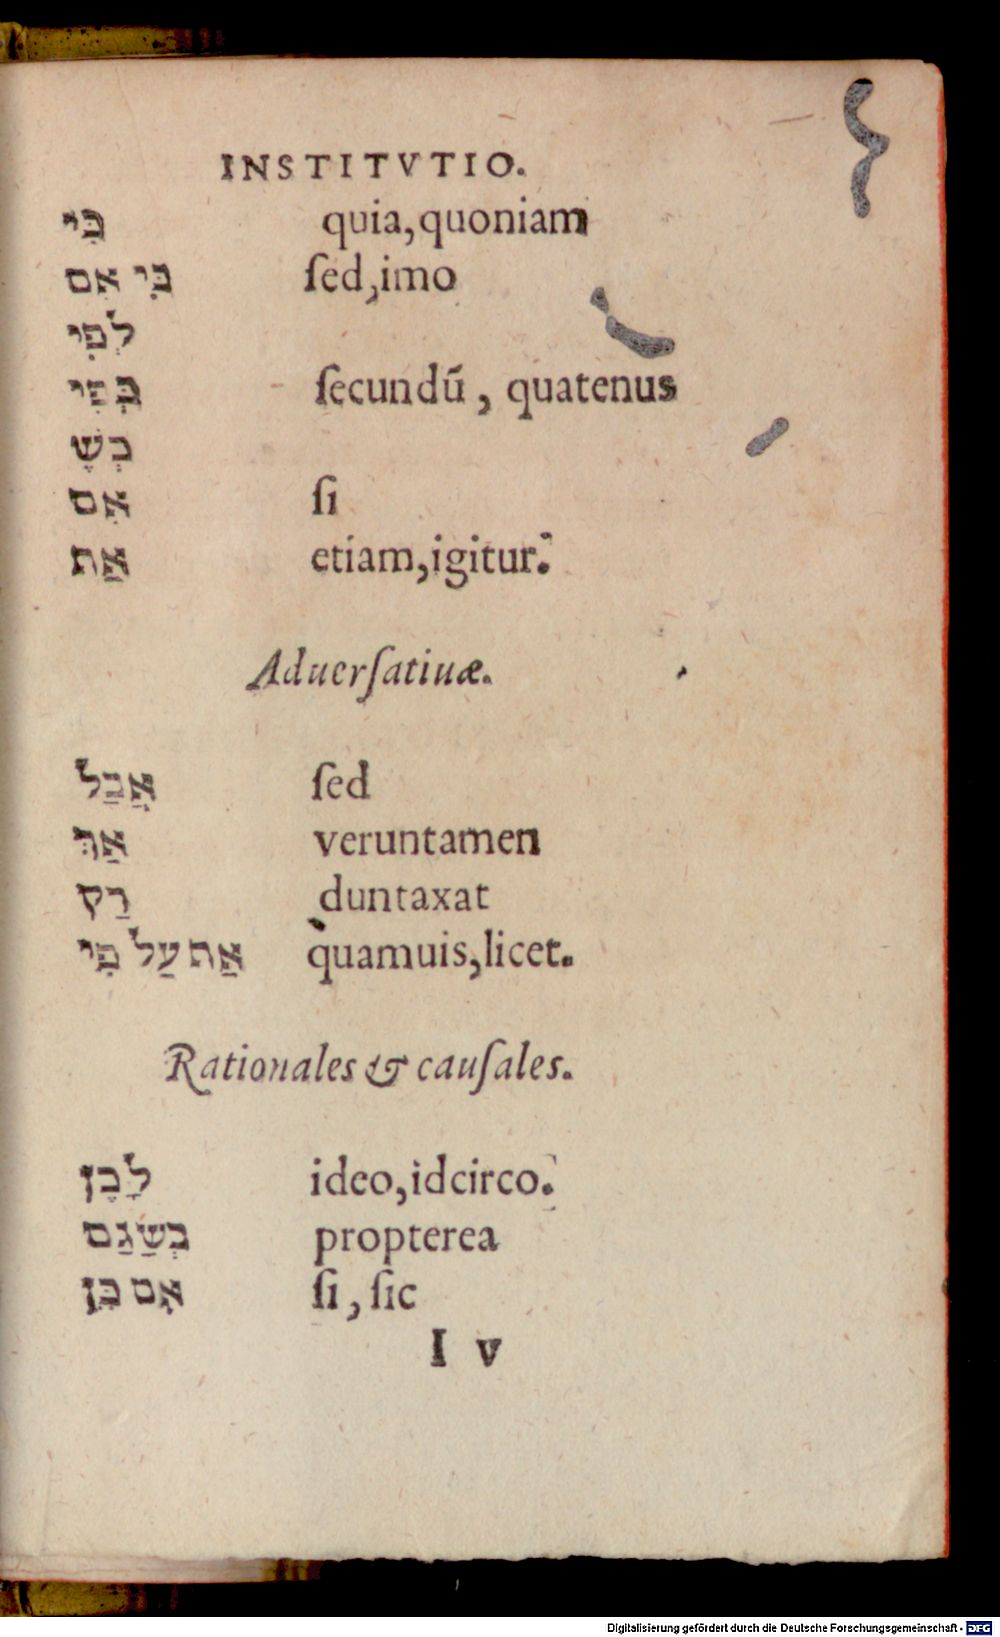 INSTITVTIO.
כִּי quia, quoniam
כִּי אִם ſed, imo
לְפִי
כְּפִי ſecundū, quatenus
כְּשֶׁ
אִם ſi
אַף etiam, igitur.
Aduerſatiuæ.
אֲבַל ſed
אַךְ veruntamen
רַק duntaxat
אַף עַל פִּי quamuis, licet.
Rationales & cauſales.
לָכֵן ideo, idcirco.
בְּשַׁגַּם propterea
אִם כֵּן ſi, ſic
I v
Digitalisierung gefördert durch die Deutsche Forschungsgemeinschaft - DFG